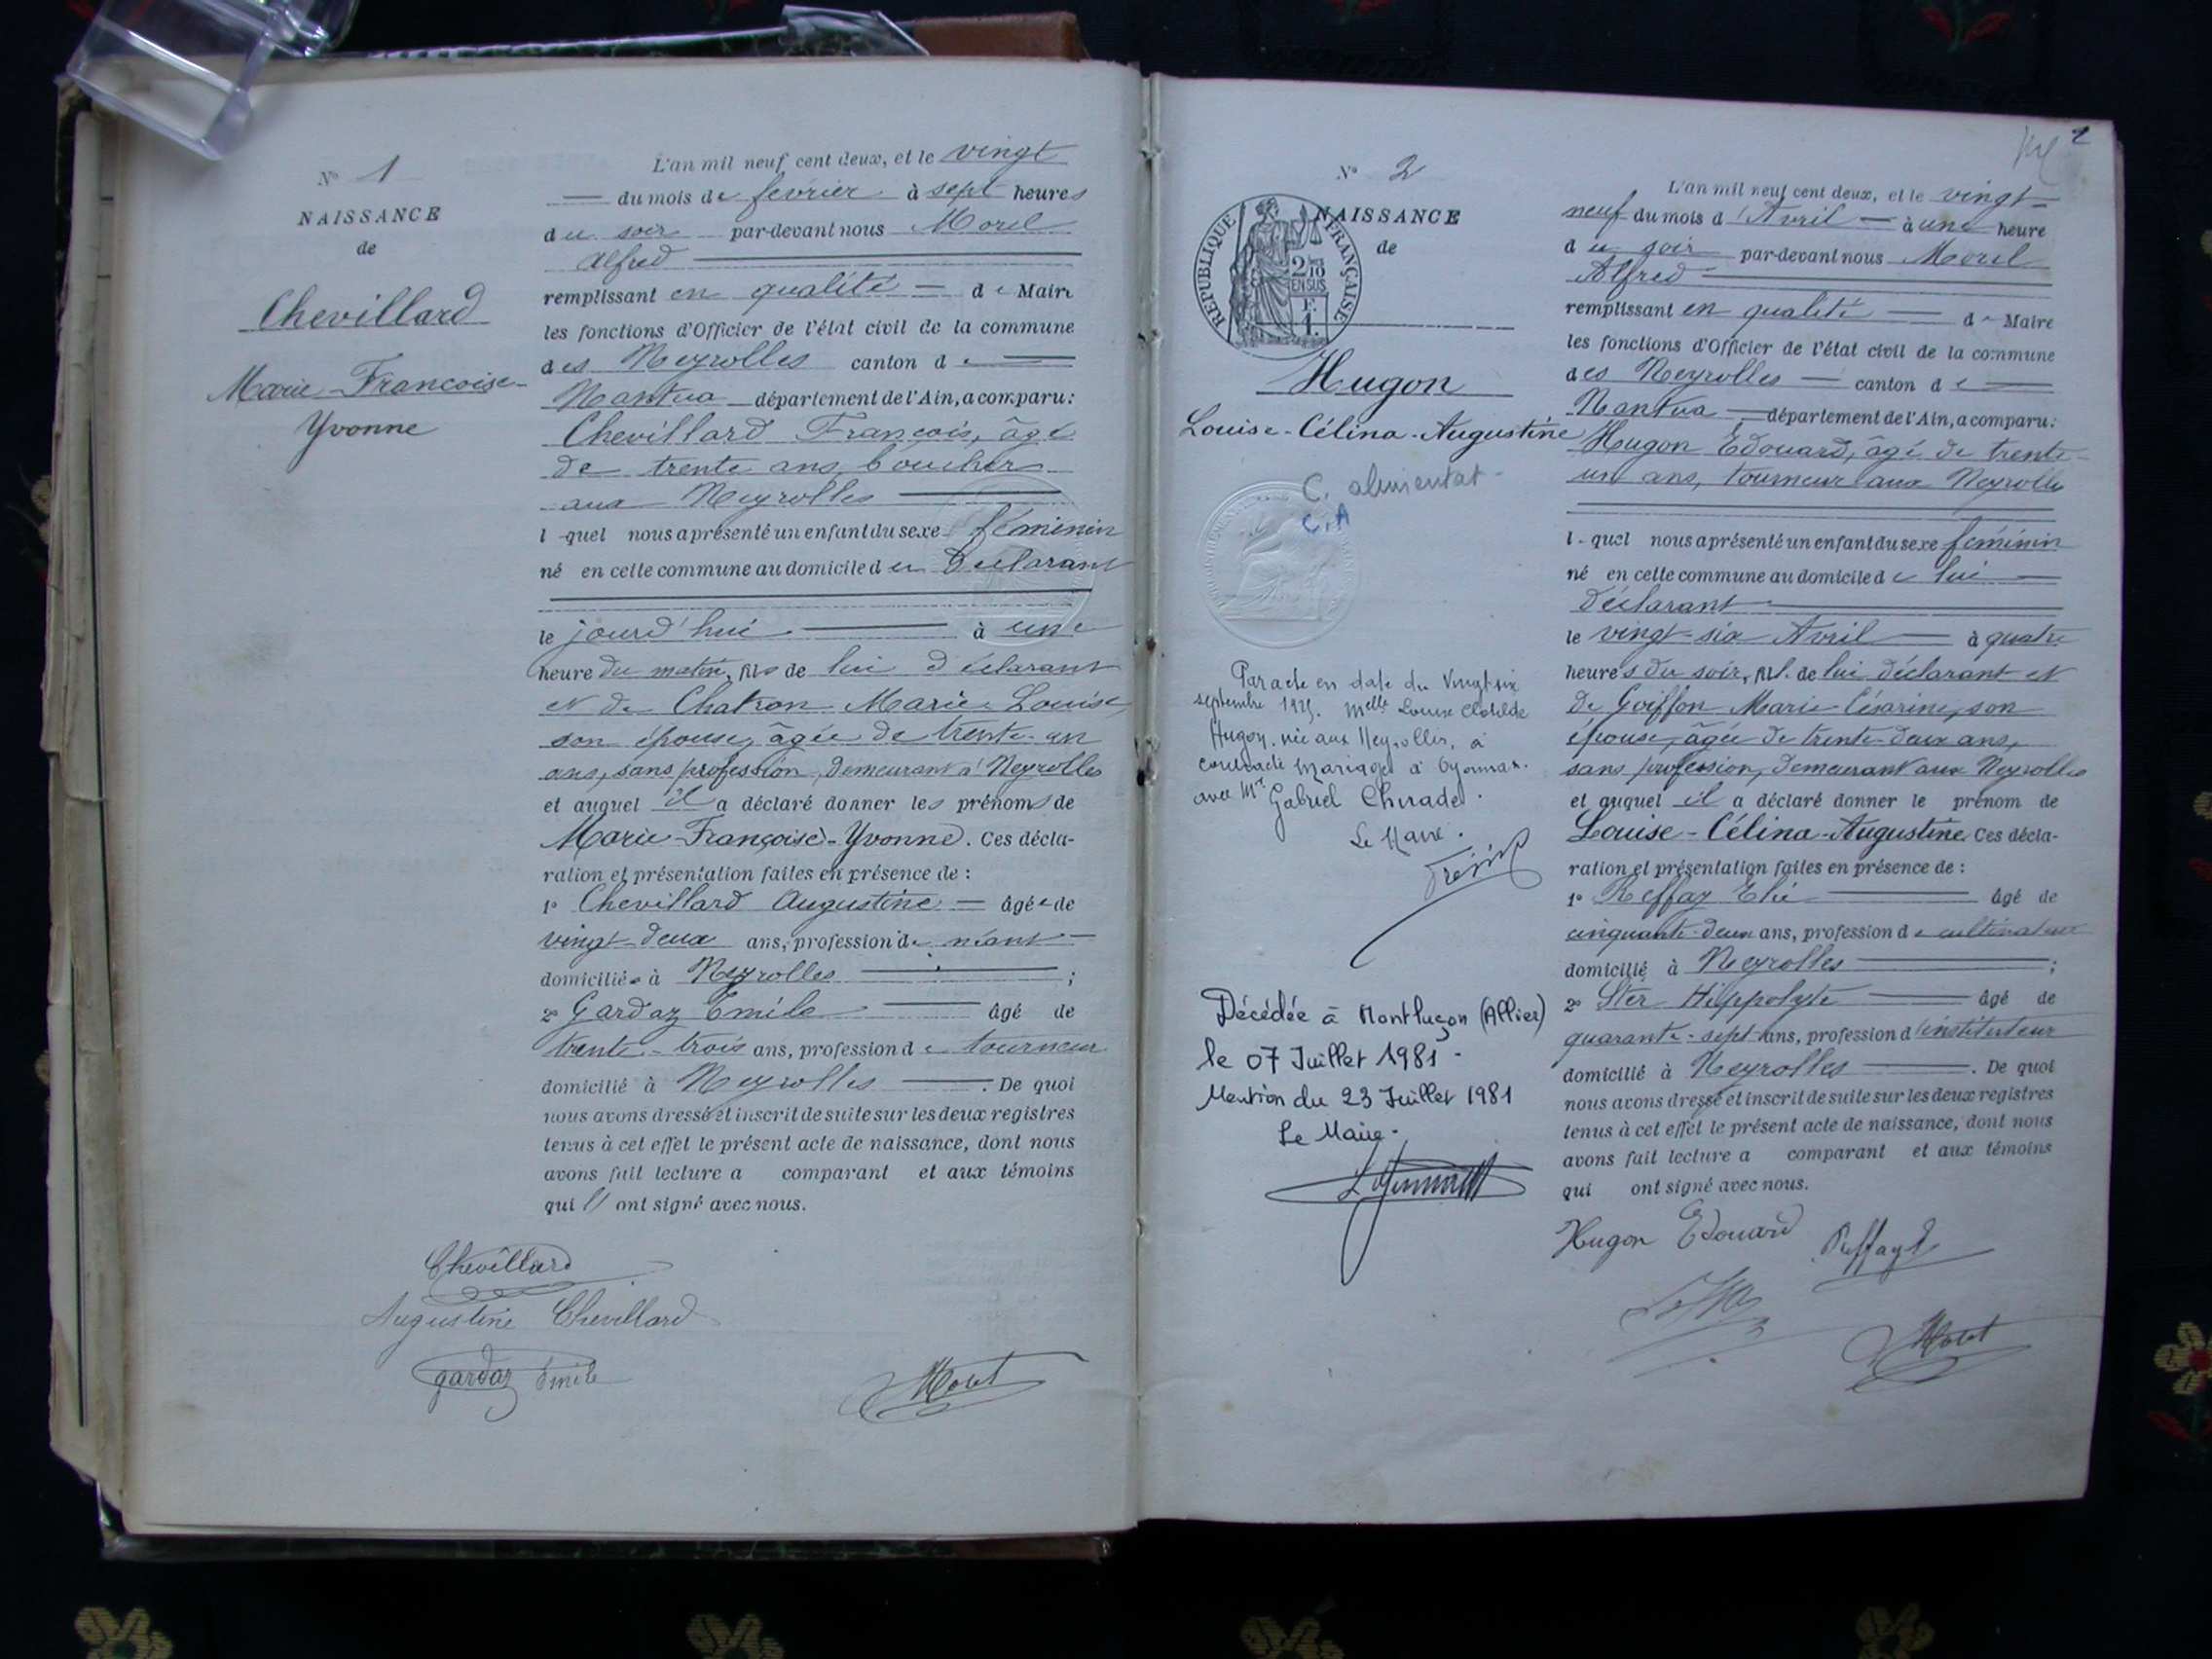 N° 1
NAISSANCE
de
Chevillard
Marie-Françoise-
Yvonne
L'an mil neuf cent deux, et le vingt
du mois de février à sept heures
du soir par-devant nous Morel
Alfred
remplissant en qualité de Maire
les fonctions d'Officier de l'état civil de la commune
des Neyrolles canton de
Nantua département de l'Ain, a comparu:
Chevillard François, âgé
de trente ans, boucher
aux Neyrolles
lequel nous a présenté un enfant du sexe féminin
né en cette commune au domicile du Déclarant
le jourd'hui à une
heure du matin, fils de lui déclarant
et de Chatron Marie-Louise,
son épouse, âgée de trente-un
ans, sans profession, demeurant à Neyrolles
et auquel il a déclaré donner les prénoms de
Marie-Françoise-Yvonne. Ces décla-
ration et présentation faites en présence de :
1° Chevillard Augustine âgée de
vingt-deux ans, profession de néant
domiciliée à Neyrolles ;
2° Gardaz Emile âgé de
trente-trois ans, profession de tourneur
domicilié à Neyrolles . De quoi
nous avons dressé et inscrit de suite sur les deux registres
tenus à cet effet le présent acte de naissance, dont nous
avons fait lecture a comparant et aux témoins
qui ont signé avec nous.
Chevillard
Augustine Chevillard
Gardaz Emile
Morel
2
N° 2
NAISSANCE
de
RÉPUBLIQUE FRANÇAISE
2/10
EN SUS
Hugon
Louise-Célina-Augustine
C. alimentat
C.A
Par acte en date du Vingt six
septembre Melle Louise Clotilde
Hugon, née aux Neyrolles, a
contracté mariage à Oyonnax
avec Mr Gabriel
Le Maire.
Décédée à Montluçon (Allier)
le 07 Juillet 1981 -
Mention du 23 Juillet 1981
Le Maire -
L'an mil neuf cent deux, et le vingt-
neuf du mois d'Avril à une heure
du soir par-devant nous Morel
Alfred
remplissant en qualité de Maire
les fonctions d'Officier de l'état civil de la commune
des Neyrolles canton de
Nantua département de l'Ain, a comparu:
Hugon Edouard, âgé de trente-
un ans, tourneur aux Neyrolles
lequel nous a présenté un enfant du sexe féminin
né en cette commune au domicile de lui
déclarant
le vingt-six Avril à quatre
heures du soir, fil. de lui déclarant et
de Goiffon Marie-Césarine, son
épouse, âgée de trente-deux ans,
sans profession, demeurant aux Neyrolles
et auquel il a déclaré donner le prénom de
Louise-Célina-Augustine. Ces décla-
ration et présentation faites en présence de :
1° Reffay Elie âgé de
cinquante-deux ans, profession de cultivateur
domicilié à Neyrolles ;
2° Hippolyte âgé de
quarante-sept ans, profession d'instituteur
domicilié à Neyrolles . De quoi
nous avons dressé et inscrit de suite sur les deux registres
tenus à cet effet le présent acte de naissance, dont nous
avons fait lecture a comparant et aux témoins
qui ont signé avec nous.
Hugon Edouard
Reffay E
Morel